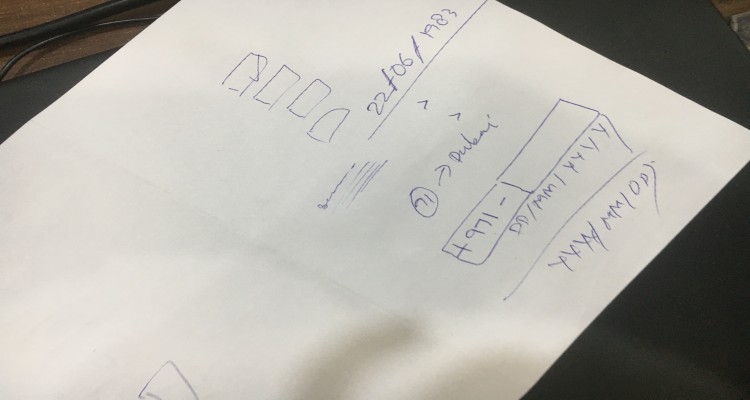 22/06/1983
71 → Dubai
+971 -
DD/MM/YYYY
YYYY/MM/DD